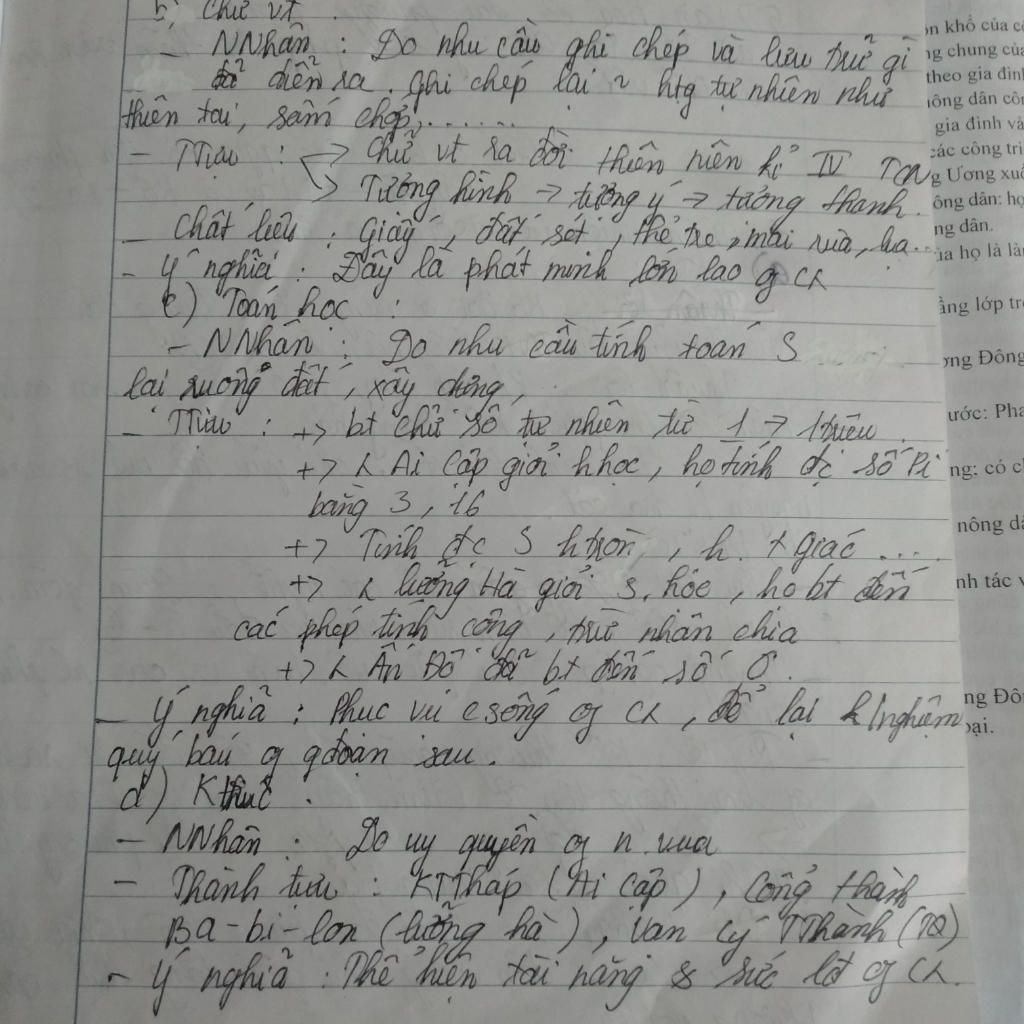 b) Chữ vt.
- NNhân : Do nhu cầu ghi chép và lưu trữ gì
đã diễn ra. Ghi chép lại ~ htg tự nhiên như
thiên tai, sấm chớp,.......
- TTựu : -> Chữ vt ra đời thiên niên kỉ IV TCN
-> Tượng hình -> tượng ý -> tượng thanh.
- Chất liệu : Giấy, đất sét, thẻ tre, mai rùa, lụa...
- Ý nghĩa : Đây là phát minh lớn lao of
c) Toán học :
- NNhân : Do nhu cầu tính toán S
lại ruộng đất, xây dựng,
- TTựu : +> bt chữ số tự nhiên từ 1 -> 1 triệu.
+> Ai Cập giỏi h học, họ tính đc số Pi
bằng 3, 16
+> Tính đc S h tròn, h. t giác ...
+> Lưỡng Hà giỏi s. học, họ bt đến
các phép tính cộng, trừ nhân chia
+> Ấn Độ đã bt đến số 0.
- Ý nghĩa : Phục vụ c sống of, để lại k Nghiệm
quý báu of gđoạn sau.
d) KThuc.
- NNhân : Do uy quyền of n. vua
- Thành tựu : KTTháp (Ai Cập), Cổng thành
Ba-bi-lon (lưỡng hà), Vạn Lý TThành (TQ)
- Ý nghĩa : Thể hiện tài năng & sức lđ of
ôn khổ của c
ng chung của
theo gia đình
nông dân côn
gia đình và
các công trì
g Ương xuô
ông dân: họ
ng dân.
ủa họ là làn
ầng lớp tr
ơng Đông
ước: Pha
ng: có c
nông dâ
nh tác v
ng Đôn
oại.